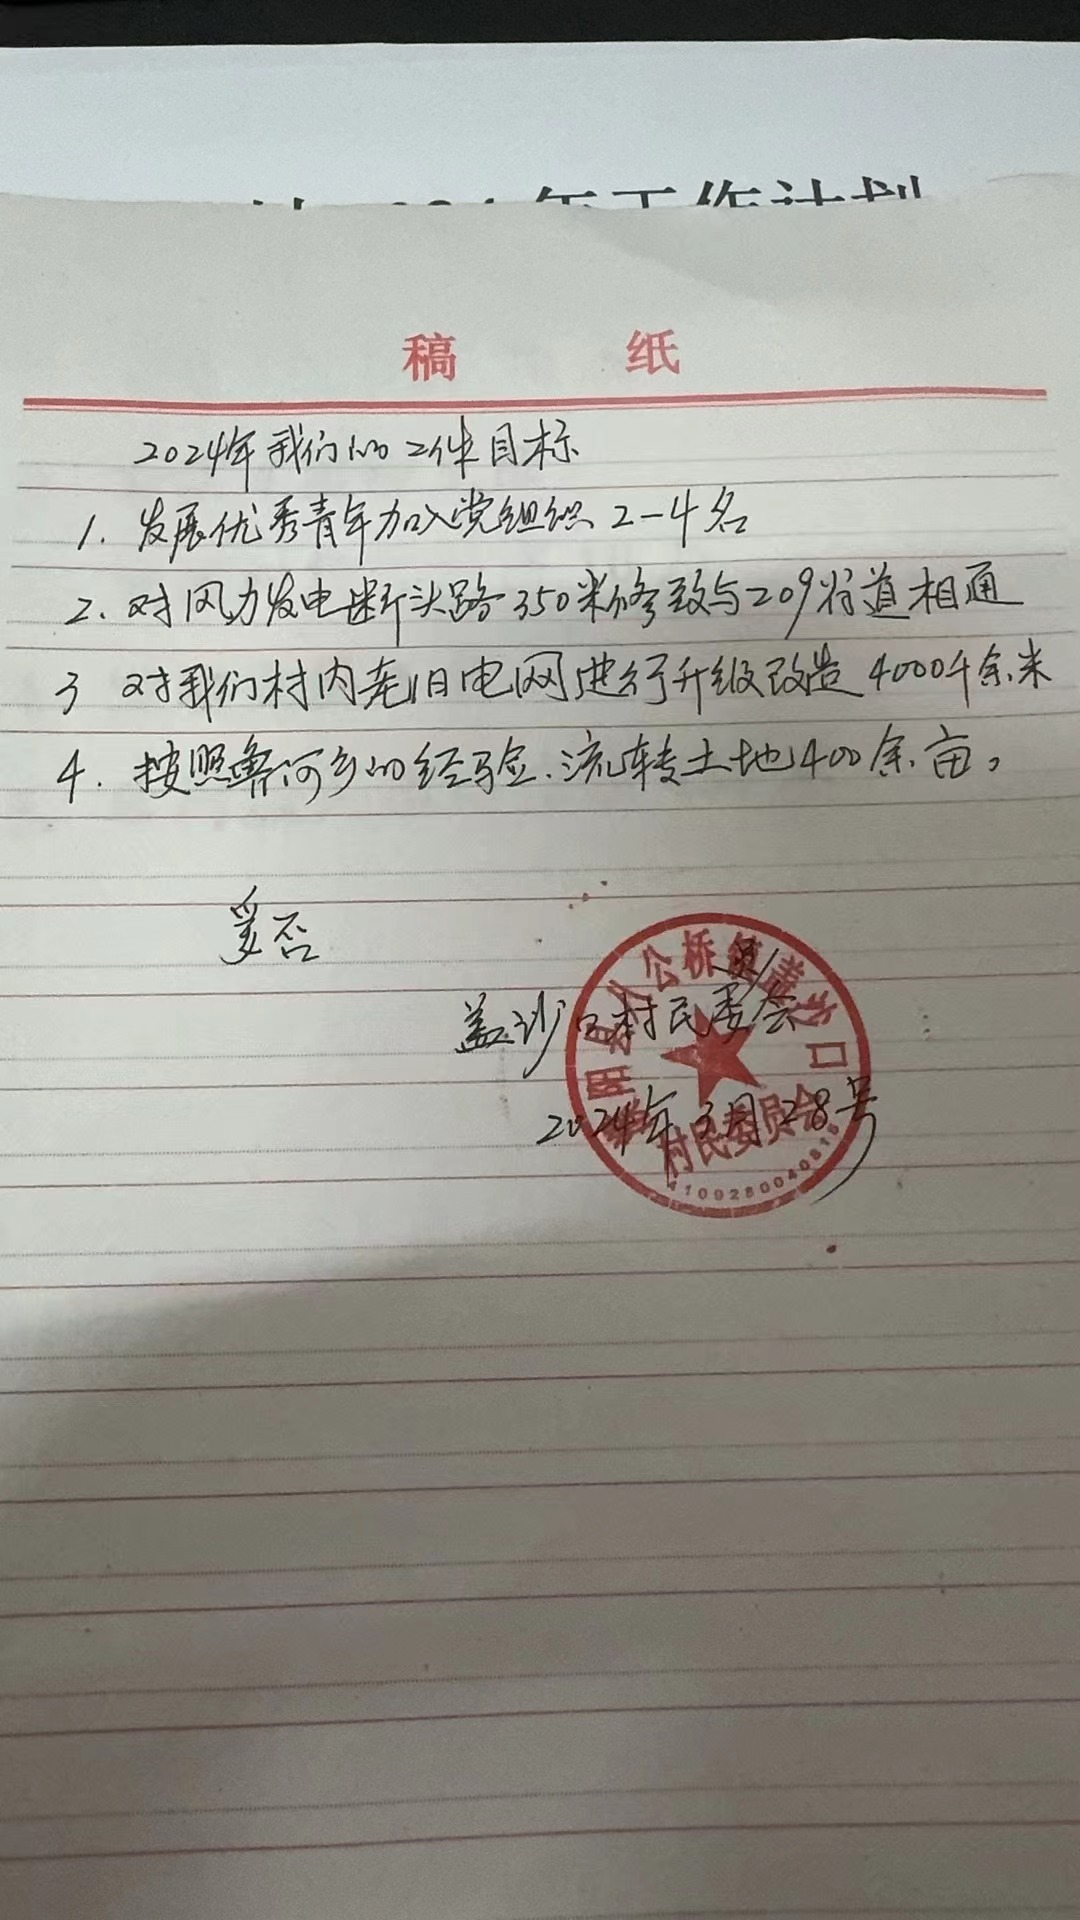 年工作计划
稿 纸
2024年我们的工作目标
1. 发展优秀青年加入党组织 2-4名
2. 对风力发电断头路350米修致与209省道相通
3 对我们村内老旧电网进行升级改造 4000千余米
4. 按照鲁河乡的经验、流转土地400余亩。
妥否
盖沙口村民委会
员
2024年3月28号
阳县八公桥镇盖沙口
村民委员会